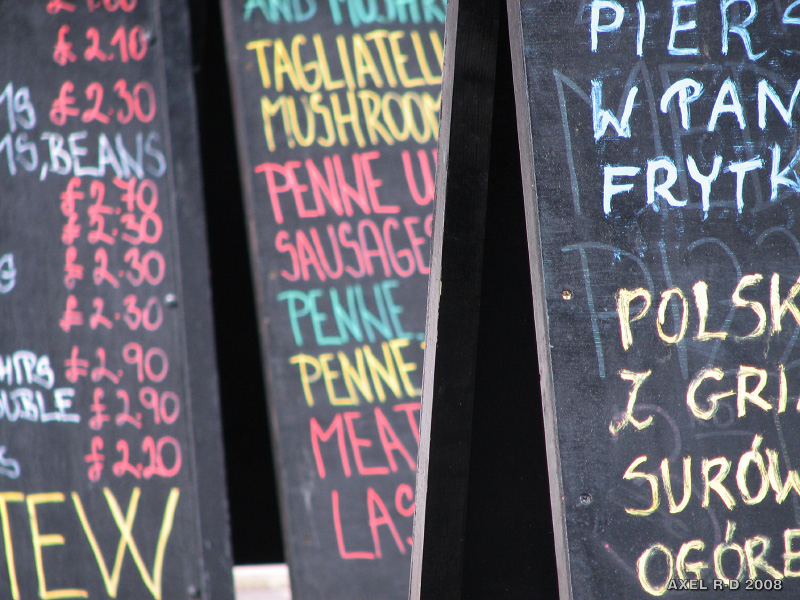 £ 2.10
£ 2.30
, BEANS
£ 2.70
£ 2.30
£ 2.30
£ 2.30
£ 2.90
£ 2.90
£ 2.20
TEW
AND MUSHR
TAGLIATELL
MUSHROOM
PENNE W
SAUSAGES
PENNE
PENNE
MEAT
LAS
PIERS
W PAN
FRYTK
POLSK
Z GRI
SURÓW
OGÓRE
AXEL R-D 2008